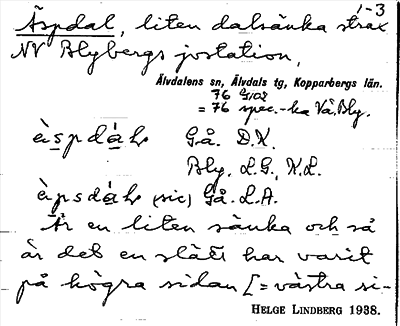 1-3
Äspdal, liten dalsänka strax
NV Blybergs jvstation,
Älvdalens sn, Älvdals tg, Kopparbergs län.
76
= 76 spec.-ka Vå. Bly.
Gå. D.K.
Bly. L.G., K.L.
(sic) Gå. L.A.
Är en liten sänka och så
är det en slått har varit
på högra sidan [= västra si-
HELGE LINDBERG 1938.